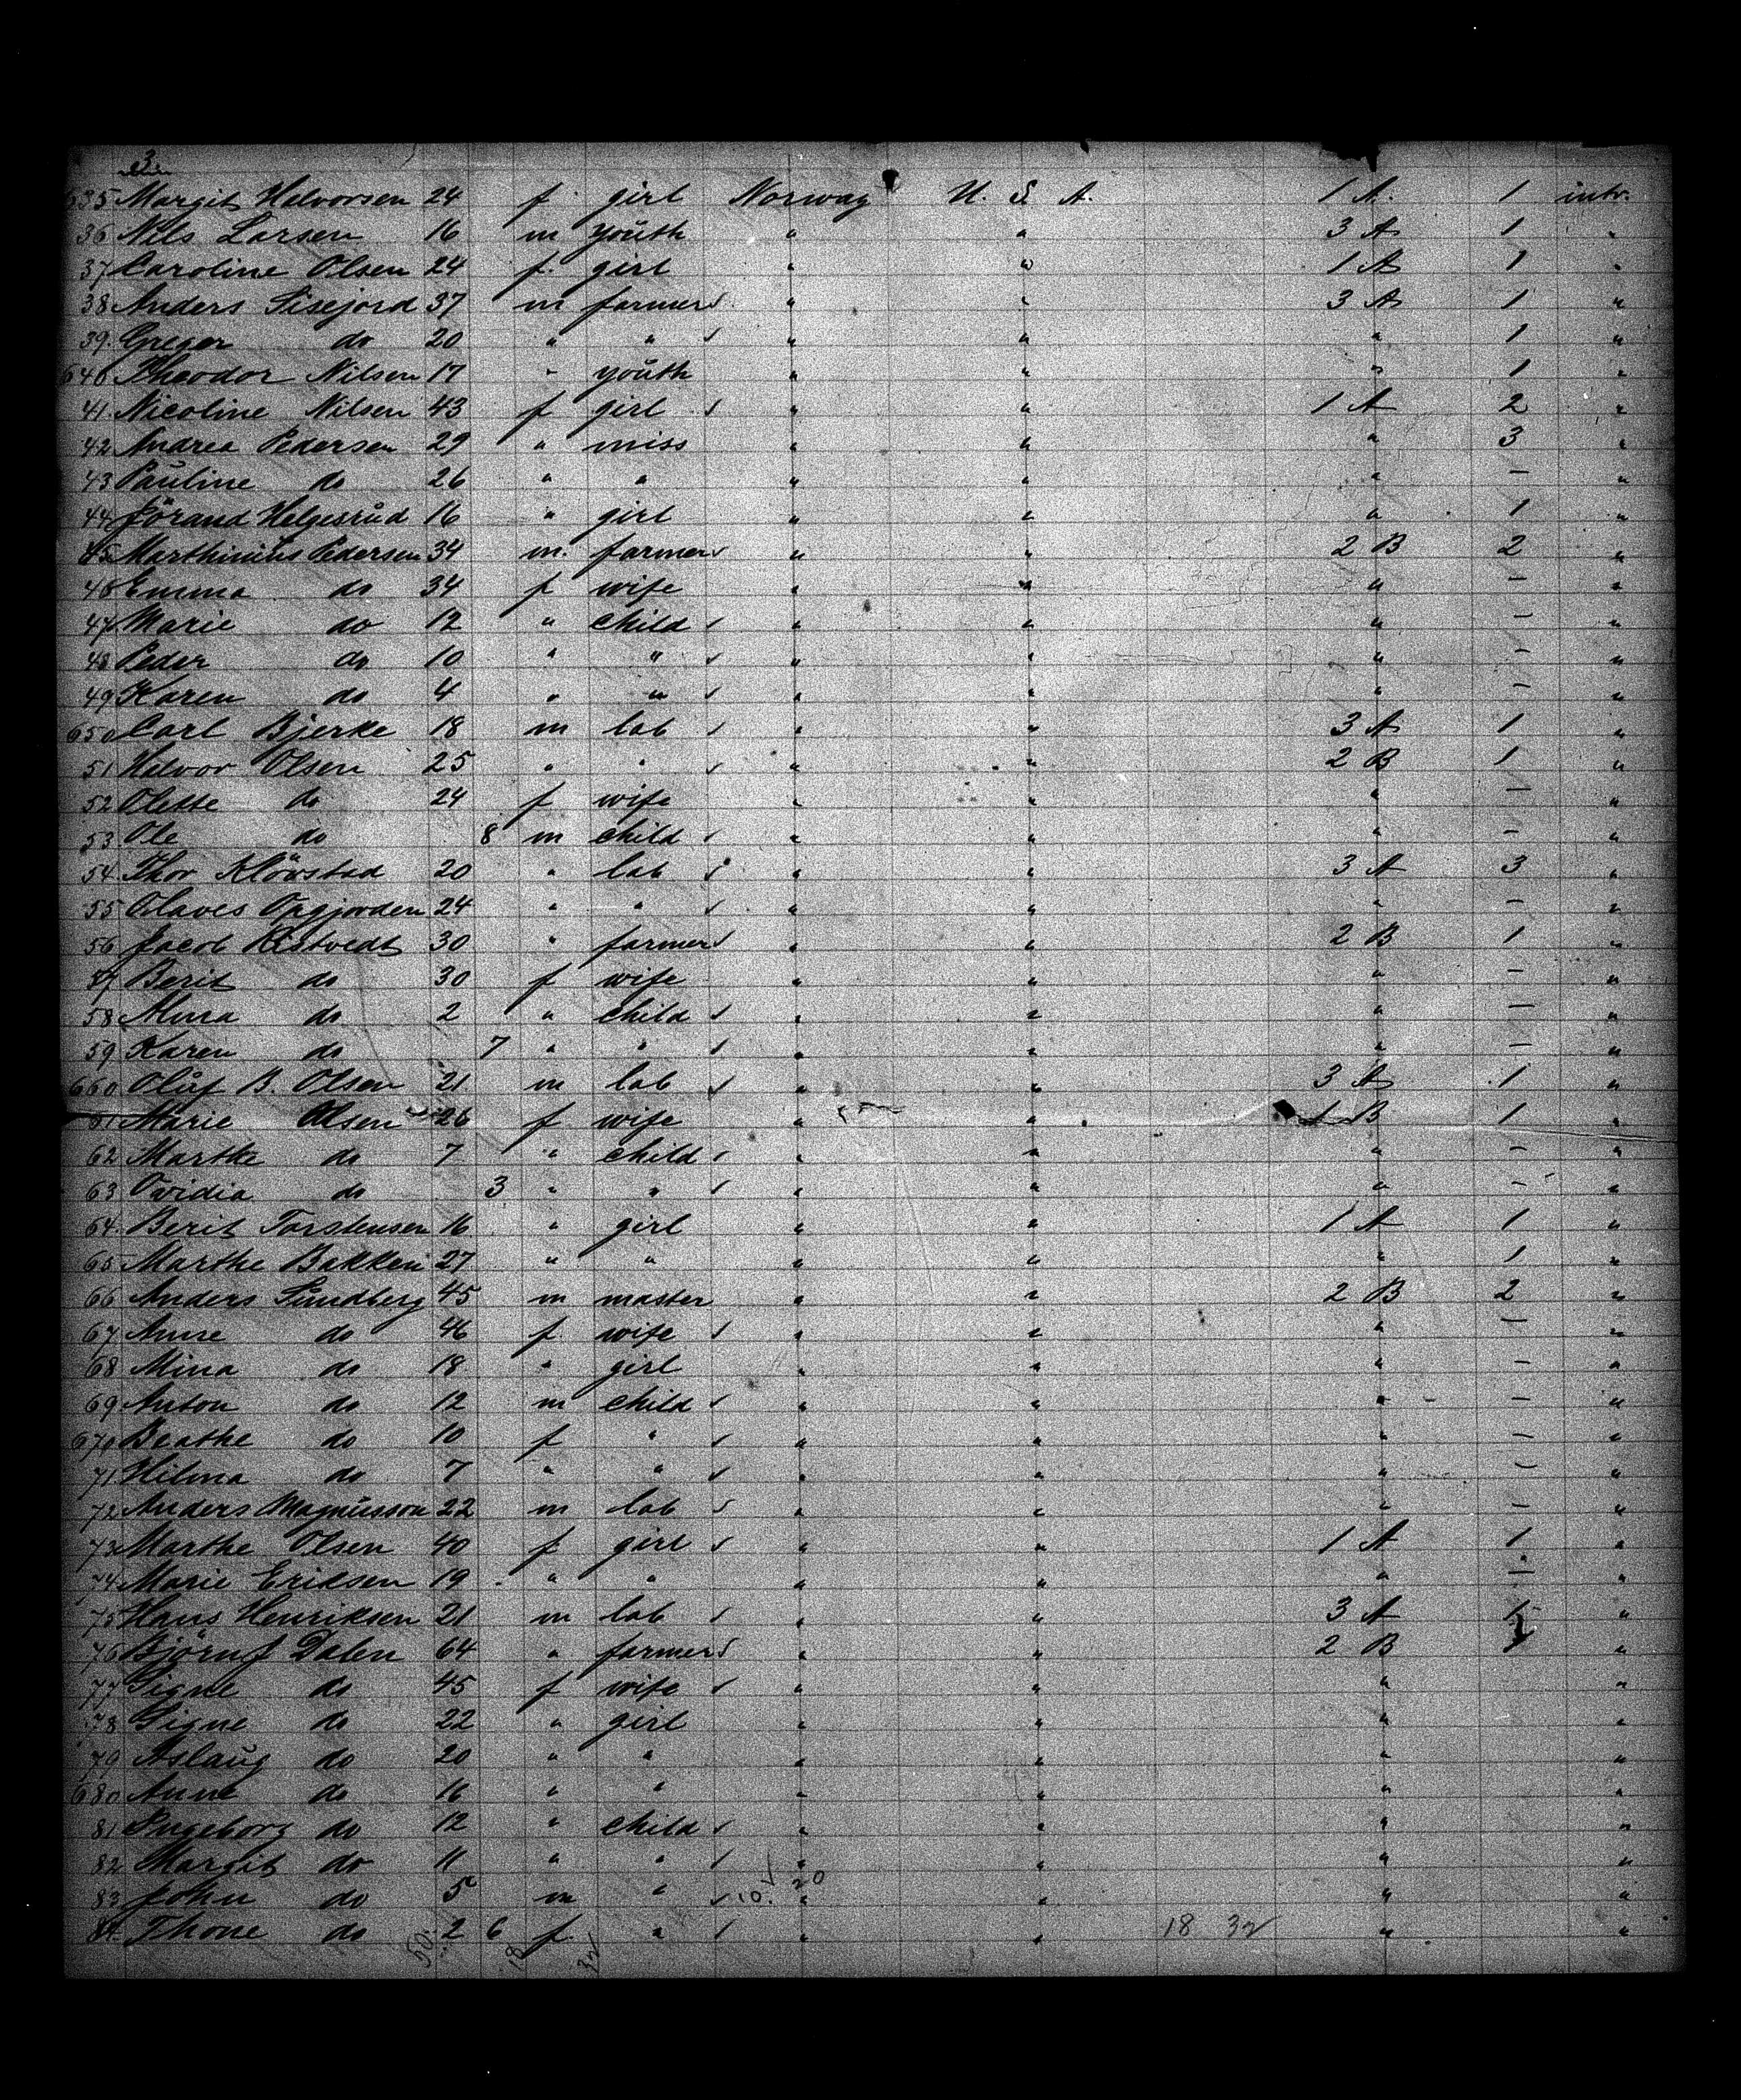 3.
635 Margit Halvorsen 24 f. girl Norway U. S. A. 1 A. 1 intr.
36 Nils Larsen 16 m youth " " 3 A 1 "
37 Caroline Olsen 24 f. girl " " 1 A 1 "
38 Anders Sisejord 37 m farmer ✓ " " 3 A 1 "
39. Greger do 20 " " ✓ " " " 1 "
640 Theodor Nilsen 17 " youth " " " 1 "
41. Nicoline Nilsen 43 f girl ✓ " " 1 A 2 "
42 Andrea Pedersen 29 " miss " " " 3 "
43 Pauline do 26 " " " " " – "
44 Jörand Helgesrud 16 " girl " " " 1 "
45 Marthinius Pedersen 34 m. farmer ✓ " " 2 B 2 "
46 Emma do 34 f wife " " " – "
47 Marie do 12 " child ✓ " " " – "
48 Peder do 10 " " ✓ " " " – "
49 Karen do 4 " " ✓ " " " – "
650 Carl Bjerke 18 m lab ✓ " " 3 A 1 "
51 Halvor Olsen 25 " " ✓ " " 2 B 1 "
52 Olette do 24 f wife " " " – "
53 Ole do 8 m child ✓ " " " – "
54 Thor Klövstad 20 " lab ✓ " " 3 A 3 "
55 Olaves Opgjorden 24 " " ✓ " " " – "
56 Jacob 30 " farmer ✓ " " 2 B 1 "
57 Berit do 30 f wife " " " – "
58 Alma do 2 " child ✓ " " " – "
59 Karen do 7 " " ✓ " " " – "
660 Oluf B. Olsen 21 m lab ✓ " " 3 A 1 "
61 Marie Olsen 26 f wife " " 1 B 1 "
62 Marthe do 7 " child ✓ " " " – "
63 Ovidia do 3 " " ✓ " " " – "
64. Berit Torstensen 16 " girl " " 1 A 1 "
65 Marthe Bakken 27 " " " " " 1 "
66 Anders Sundberg 45 m master " " 2 B 2 "
67 Anne do 46 f. wife ✓ " " " – "
68 Mina do 18 " girl " " " – "
69 Anton do 12 m child ✓ " " " – "
670 Beathe do 10 f " ✓ " " " – "
71 Hilma do 7 " " ✓ " " " – "
72 Anders Magnusson 22 m lab ✓ " " " – "
73 Marthe Olsen 40 f girl ✓ " " 1 A 1 "
74 Marie Eriksen 19 " " " " " – "
75 Hans Henriksen 21 m lab ✓ " " 3 A 1 "
76 Björnf Dalen 64 " farmer ✓ " " 2 B 1 "
77 Signe do 45 f wife ✓ " " " "
78 Signe do 22 " girl " " " "
79 Aslaug do 20 " " " " " "
680 Anne do 16 " " " " " "
81 Ingeborg do 12 " child ✓ " " " "
82 Margit do 11 " " ✓ " " " "
83 John do 5 m " ✓ 10. 20 " " " "
84. Thone do 2 6 f. " ✓ " " 18 32 " "
50. 18 32